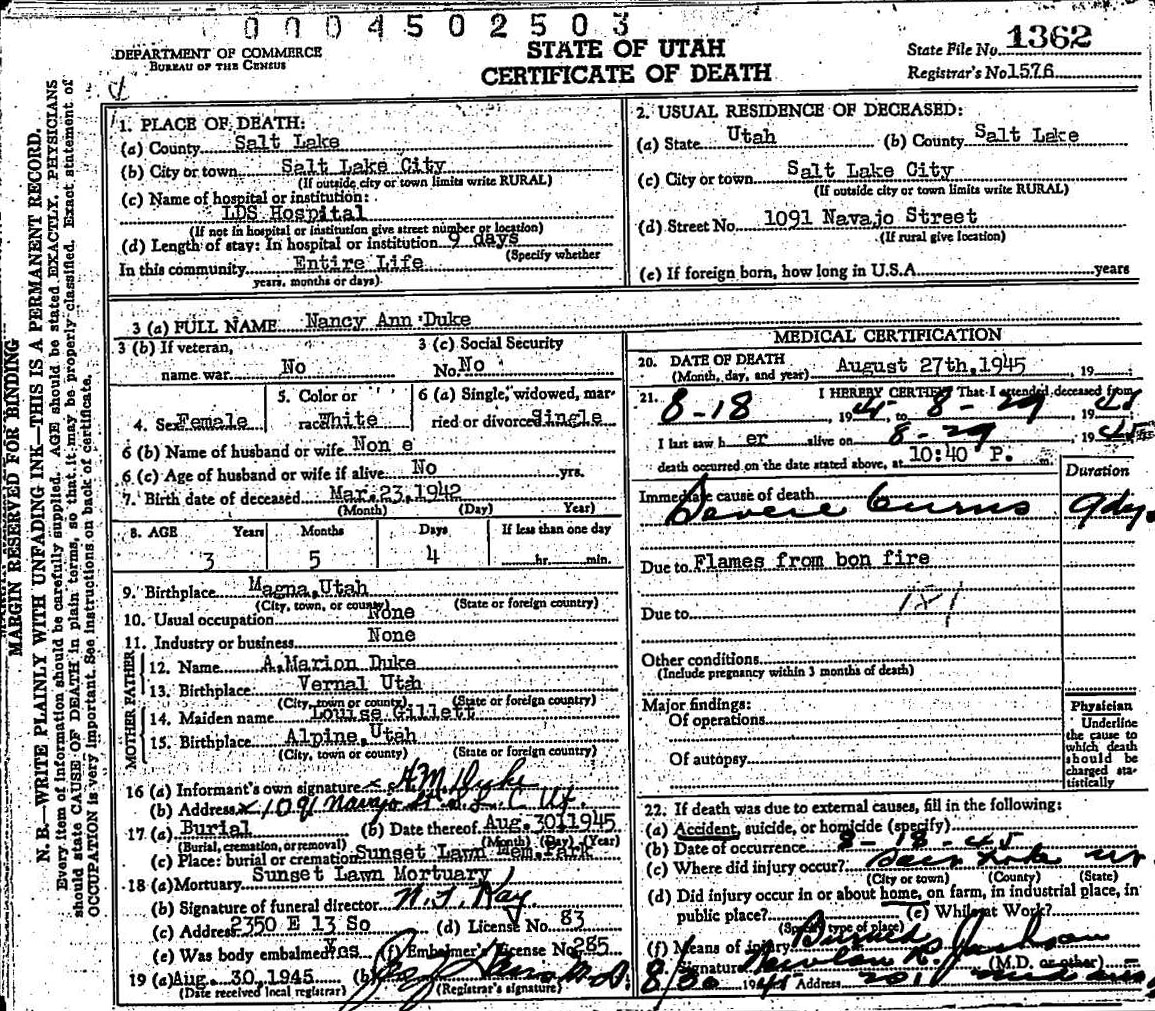 0004502503
DEPARTMENT OF COMMERCE
BUREAU OF THE CENSUS
STATE OF UTAH
CERTIFICATE OF DEATH
State File No. 1362
Registrar's No. 1576
MARGIN RESERVED FOR BINDING
N. B.—WRITE PLAINLY WITH UNFADING INK—THIS IS A PERMANENT RECORD.
Every item of information should be carefully supplied. AGE should be stated EXACTLY. PHYSICIANS
should state CAUSE OF DEATH in plain terms, so that it may be properly classified. Exact statement of
OCCUPATION is very important. See instructions on back of certificate.
1. PLACE OF DEATH:
(a) County Salt Lake
(b) City or town Salt Lake City
(If outside city or town limits write RURAL)
(c) Name of hospital or institution:
LDS Hospital
(If not in hospital or institution give street number or location)
(d) Length of stay: In hospital or institution 9 days
(Specify whether
In this community Entire Life
years, months or days)
2. USUAL RESIDENCE OF DECEASED:
(a) State Utah (b) County Salt Lake
(c) City or town Salt Lake City
(If outside city or town limits write RURAL)
(d) Street No. 1091 Navajo Street
(If rural give location)
(e) If foreign born, how long in U.S.A. years
3 (a) FULL NAME Nancy Ann Duke
3 (b) If veteran, 3 (c) Social Security
name war No No. No
4. Sex Female 5. Color or race White 6 (a) Single, widowed, married or divorced Single
6 (b) Name of husband or wife Non e
6 (c) Age of husband or wife if alive No yrs.
7. Birth date of deceased Mar. 23, 1942
(Month) (Day) Year)
8. AGE Years Months Days If less than one day
3 5 4 hr. min.
9. Birthplace Magna, Utah
(City, town, or county) (State or foreign country)
10. Usual occupation None
11. Industry or business None
FATHER
12. Name A. Marion Duke
13. Birthplace Vernal Utah
(City, town or county) (State or foreign country)
MOTHER
14. Maiden name Louise Gillett
15. Birthplace Alpine, Utah
(City, town or county) (State or foreign country)
16 (a) Informant's own signature x A M Duke
(b) Address x 1091 Navajo St. S. L. C Ut.
17 (a) Burial (b) Date thereof Aug. 30, 1945
(Burial, cremation, or removal) (Month) (Day) (Year)
(c) Place: burial or cremation Sunset Lawn Mem. Park
18 (a) Mortuary Sunset Lawn Mortuary
(b) Signature of funeral director
(c) Address 2350 E 13 So (d) License No. 83
(e) Was body embalmed Yes (f) Embalmer's License No. 285
19 (a) Aug. 30, 1945 (b)
(Date received local registrar) (Registrar's signature)
MEDICAL CERTIFICATION
20. DATE OF DEATH August 27th, 1945 19
(Month, day, and year)
21. I HEREBY CERTIFY That I attended deceased from
8-18, 1945, to 8-29, 1945
I last saw h er alive on 8-29, 1945
death occurred on the date stated above, at 10:40 P. m.
Duration
Immediate cause of death
Severe burns 9 dys
Due to Flames from bon fire
Due to 181
Other conditions
(Include pregnancy within 3 months of death)
Major findings:
Of operations
Of autopsy
Physician
Underline
the cause to
which death
should be
charged sta-
tistically
22. If death was due to external causes, fill in the following:
(a) Accident, suicide, or homicide (specify)
(b) Date of occurrence 8-18-45
(c) Where did injury occur? Salt Lake Ut.
(City or town) (County) (State)
(d) Did injury occur in or about home, on farm, in industrial place, in
public place? (e) While at Work?
(Specify type of place)
(f) Means of injury Burned
Signature Jackson (M.D. or other)
8/30 1945 Address